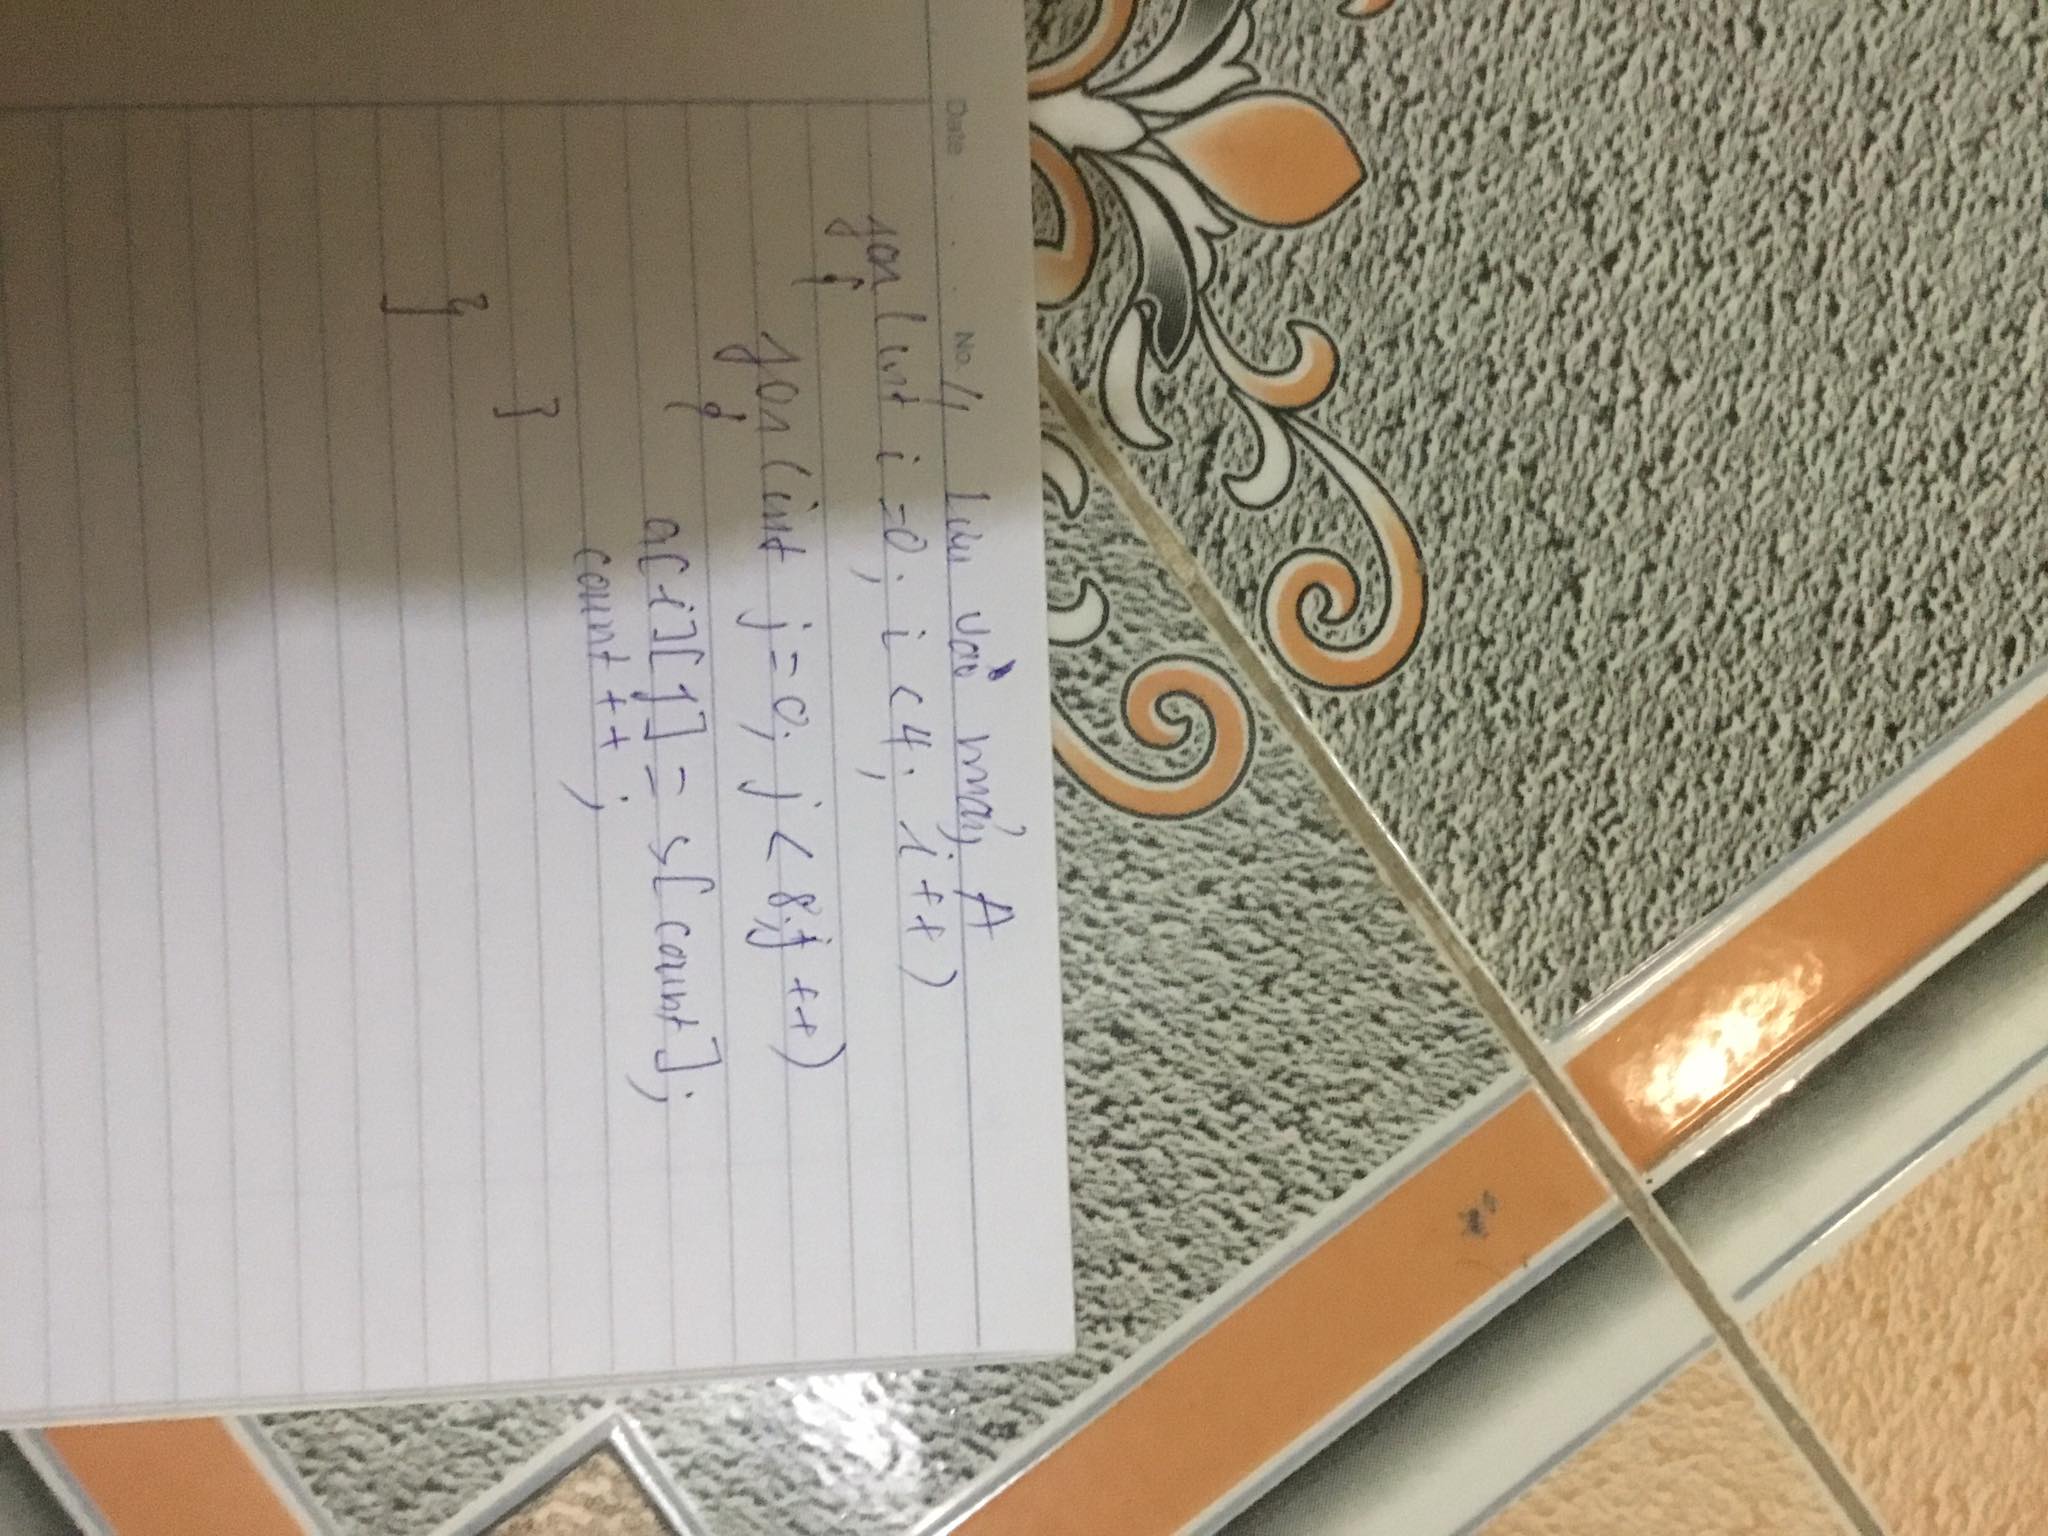 Date No. // Lưu vào mảng A
for (int i =0; i < 4; i ++)
{
for (int j = 0; j < 8; j ++)
{
a[i][j] = s[count];
count ++ ;
}
}